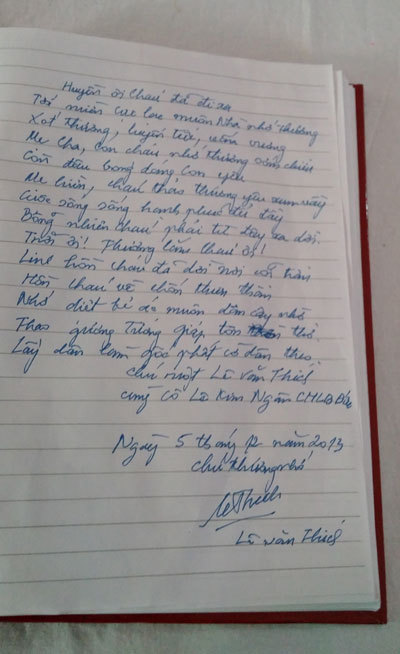 Huyền ơi cháu đã đi xa
Tới miền cực lạc muôn Nhà nhớ thương
Xót thương, luyến tiếc, vấn vương
Mẹ Cha, con cháu nhớ thương sớm chiều
Còn đâu bóng dáng con yêu
Mẹ hiền, cháu thảo thương yêu xum vầy
Cuộc sống sống hạnh phúc đủ đầy
Bỗng nhiên cháu phải từ đây xa dời.
Trời ơi! Thương lắm cháu ơi!
Linh hồn cháu đã dời nơi cõi trần
Hồn cháu về chốn thiên thần
Nhớ diết bé đó muôn dân cậy nhờ
Theo gương Trưởng giáp tôn thờ.
Lấy dân làm gốc phất cờ dân theo.
Chú ruột Lê Văn Thích
cùng cô Lê Kim Ngân CHLB Đức
Ngày 5 tháng 12 năm 2013
Chú thương nhớ
Lê Văn Thích